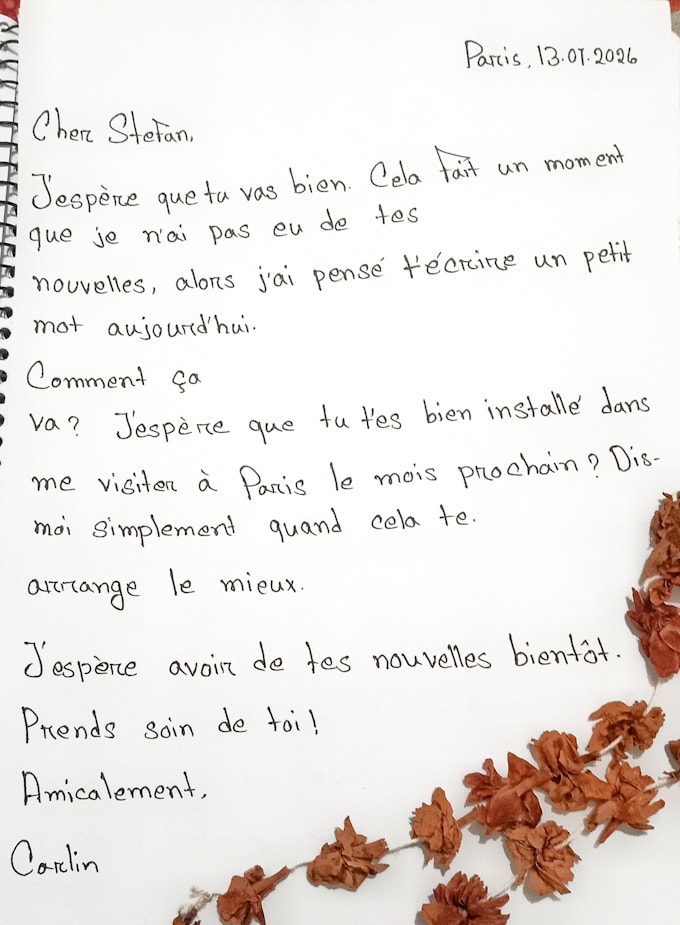 Paris, 13.07.2026
Cher Stefan,
J'espère que tu vas bien. Cela fait un moment
que je n'ai pas eu de tes
nouvelles, alors j'ai pensé t'écrire un petit
mot aujourd'hui.
Comment ça
va? J'espère que tu t'es bien installé dans
me visiter à Paris le mois prochain? Dis-
moi simplement quand cela te.
arrange le mieux.
J'espère avoir de tes nouvelles bientôt.
Prends soin de toi!
Amicalement,
Carlin